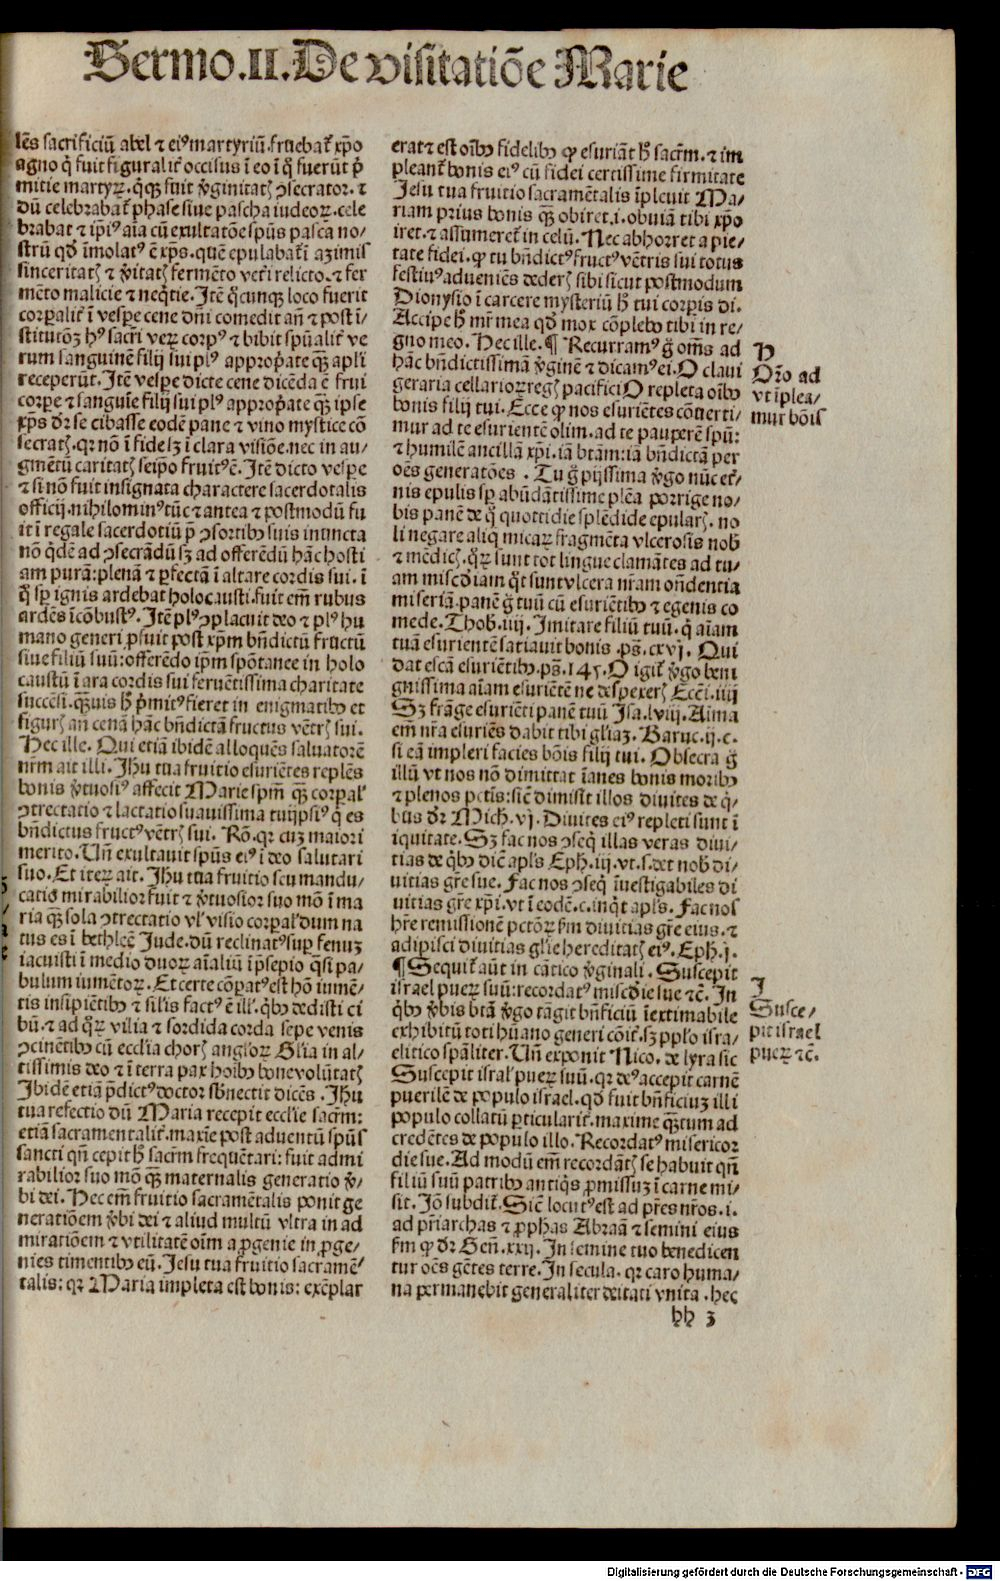 Sermo .II. De visitatiōe Marie
lēs sacrificiū abel ⁊ eiꝰ martyriū. fruebat᷑ xp̄o
agno q̇ fuit figuralit᷑ occisus ī eo ī q̇ fuerūt p̄
mitie martyrꝝ. q̇qꝫ fuit v̇ginitatꝭ ↄsecrator. ⁊
dū celebrabat᷑ phase siue pascha iudeoꝝ. cele
brabat ⁊ ip̄iꝰ aīa cū exultatōe spūs pascā no/
strū qd̄ īmolatꝰ ē xp̄s. quē epulabat᷑ ī azimis
sinceritatꝭ ⁊ v̇itatꝭ fermēto vet᷑i relicto. ⁊ fer
mēto malicie ⁊ neq̇tie. Itē q̇cunqꝫ loco fuerit
corꝑalit᷑ ī vesꝑe cene dn̄i comedit an̄ ⁊ post ī/
stitutōꝫ hꝰ sacr̄i verꝝ corpꝰ ⁊ bibit spūalit᷑ ve
rum sanguinē filij sui plꝰ approp̄ate qꝫ apl̄i
receperūt. Itē vesꝑe dicte cene dicēda ē frui
corꝑe ⁊ sanguīe filij sui plꝰ approp̄ate qꝫ ipse
xp̄s dr̄ se cibasse eodē pane ⁊ vino mystice cō
secratꝭ. qꝛ nō ī fide sꝫ ī clara visiōe. nec in au/
gmētū caritatꝭ seip̄o fruitꝰ ē. Itē dicto vesꝑe
⁊ si nō fuit insignata charactere sacerdotalis
officij. nihilominꝰ tūc ⁊ antea ⁊ postmodū fu
it ī regale sacerdotiū p̄ ↄsortibꝰ suis iniuncta
nō q̇dē ad ↄsecrādū sꝫ ad offerēdū hāc hosti
am purā: plenā ⁊ ꝑfectā ī altare cordis sui. ī
q̇ sꝑ ignis ardebat holocausti. fuit em̄ rubus
ardēs īcōbustꝰ. Itē plꝰ ↄplacuit deo ⁊ plꝰ hu
mano generi ꝓfuit post xp̄m bn̄dictū fructū
siue filiū suū: offerēdo ip̄m spōtanee in holo
caustū ī ara cordis sui feruētissima charitate
succēsi. qꝫuis h̄ p̄mitꝰ fieret in enigmatibꝰ et
figurꝭ an̄ cenā hāc bn̄dictā fructus vētrꝭ sui.
Hec ille. Qui etiā ibidē alloquēs saluatorē
nr̄m ait illi. Jhu tua fruitio esuriētes replēs
bonis v̇tuosiꝰ affecit Marie spm̄ qꝫ corꝑal᷑
ↄtrectatio ⁊ lactatio suauissima tuijpsiꝰ q̇ es
bn̄dictus fructꝰ vētrꝭ sui. Rō. qꝛ cuꝫ maiori
merito. Vn̄ exultauit spūs eiꝰ ī deo salutari
suo. Et iteꝝ ait. Jhu tua fruitio seu mandu/
catio mirabilior fuit ⁊ v̇tuosior suo mō ī ma
ria qꝫ sola ↄtrectatio vl᷑ visio corꝑal᷑ dum na
tus es ī bethleē Jude. dū reclinatꝰ suꝑ fenuꝫ
iacuisti ī medio duoꝝ aīaliū īp̄sepio q̇si pa/
bulum iumētoꝝ. Et certe cōꝑatꝰ est hō iumē/
tis insipiētibꝰ ⁊ sil̄is factꝰ ē ill᷑. q̇bꝰ dedisti ci
bū. ⁊ ad q̇ꝝ vilia ⁊ sordida corda sepe venis
ↄcinētibꝰ cū eccl̄ia chorꝭ angl̄oꝝ Gl̄ia in al/
tissimis deo ⁊ ī terra pax hoībꝰ bone volūtatꝭ
Ibidē etiā p̄dictꝰ doctor sb̄nectit dicēs. Jhu
tua refectio dū Maria recepit eccl̄ie sacr̄m:
etiā sacramentalit᷑. maxīe post aduentū spūs
sancti qn̄ cepit h̄ sacr̄m frequētari: fuit admi
rabilior suo mō qꝫ maternalis generatio v̇/
bi dei. Hec em̄ fruitio sacramētalis ponit ge
neratiōem v̇bi dei ⁊ aliud multū vltra in ad
miratiōem ⁊ vtilitatē oīm a ꝓgenie in ꝓge/
nies timentibꝰ eū. Jesu tua fruitio sacramē/
talis: qꝛ Maria impleta est bonis: exēplar
erat ⁊ est oībꝰ fidelibꝰ ꝙ esuriāt h̄ sacr̄m. ⁊ im
pleant᷑ bonis eiꝰ cū fidei certissime firmitate
Jesu tua fruitio sacramētalis īpleuit Ma/
riam prius bonis qꝫ obiret. i. obuiā tibi xp̄o
iret. ⁊ assumeret᷑ in celū. Nec abhorret a pie/
tate fidei. ꝙ tu bn̄dictꝰ fructꝰ vētris sui totus
festiuꝰ adueniēs dederꝭ sibi sicut postmodum
Dionysio ī carcere mysteriū h̄ tui corꝑis di.
Accipe h̄ mr̄ mea qd̄ mox cōplebo tibi in re/
gno meo. Hec ille. ¶ Recurramꝰ g̊ om̄s ad
hāc bn̄dictissimā v̇ginē ⁊ dicamꝰ ei. O claui
geraria cellarioꝝ regꝭ pacifici O repleta oībꝰ
bonis filij tui. Ecce ꝙ nos esuriētes cōuerti/
mur ad te esurientē olim. ad te pauperē spū:
⁊ humilē ancillā xp̄i. iā btām: iā bn̄dictā per
oēs generatōes. Tu g̊ pijssima v̇go nūc et᷑/
nis epulis sꝑ abūdātissime plēa porrige no/
bis panē de q̇ quottidie splēdide epularꝭ. no
li negare aliq̇ micaꝝ fragmēta vlcerosis nob̄
⁊ mēdicꝭ. q̇ꝝ sunt tot lingue clamātes ad tu/
am misc̄diam q̇t sunt vlcera nr̄am on̄dentia
miseriā. panē g̊ tuū cū esuriētibꝰ ⁊ egenis co
mede. Thob. iiij. Imitare filiū tuū. q̇ aīam
tuā esurientē satiauit bonis. ps̄. cxvj. Qui
dat escā esuriētibꝰ. ps̄. 145. O igit᷑ v̇go beni
gnissima aīam esuriētē ne despexerꝭ Ecēi. iiij
Sꝫ frāge esuriēti panē tuū Isa. lviij. Aīma
em̄ nr̄a esuriēs dabit tibi gl̄iaꝫ. Baruc. ij. c.
si eā impleri facies bōis filij tui. Obsecra g̊
illū vt nos nō dimittat īanes bonis moribꝰ
⁊ plenos pctīs: sic̄ dimisit illos diuites de q̇/
bus dr̄ Mich. vj. Diuites eiꝰ repleti sunt ī
iqui­tate. Sꝫ fac nos ↄseq̇ illas veras diui/
tias de q̇bꝰ dic̄ apl̄s Eph. iij. vt. s. det nob̄ di/
uitias gl̄e sue. Fac nos ↄseq̇ īuestigabiles di
uitias gr̄e xp̄i. vt ī eodē. c. inq̇t apl̄s. Fac nos
hr̄e remissionē pctōꝝ ẜm diuitias gr̄e eius. ⁊
adipisci diuitias gl̄ie hereditatꝭ eiꝰ. Eph. j.
¶ Sequit᷑ aūt in cātico v̇ginali. Suscepit
israel pueꝝ suū: recordatꝰ misc̄die sue ⁊c̄. In
q̇bꝰ v̇bis btā v̇go tāgit bn̄ficiū īextimabile
exhibitū toti hūano generi cōit᷑. sꝫ ppl̄o isra/
elitico spāliter. Vn̄ exponit Nico. de lyra sic
Suscepit isral᷑ pueꝝ suū. qꝛ deꝰ accepit carnē
puerilē de populo israel. qd̄ fuit bn̄ficiuꝫ illi
populo collatū ꝑticularit᷑. maxime qꝫtum ad
credētes de populo illo. Recordatꝰ misericor
die sue. Ad modū em̄ recordātꝭ se habuit qn̄
filiū suū patribꝰ antiq̇s ꝓmissuꝫ ī carne mi/
sit. Jō subdit᷑. Sic̄ locutꝰ est ad pr̄es nr̄os. i.
ad pr̄iarchas ⁊ ꝓphas Abraā ⁊ semini eius
ẜm ꝙ dr̄ Gen̄. xxij. In semine tuo benedicen
tur oēs gētes terre. In secula. qꝛ caro huma/
na permanebit generaliter deitati vnita. hec
hh 3
H
Or̄o ad
vt īplea/
mur bōis
I
Susce/
pit israel
pueꝝ ⁊c̄.
Digitalisierung gefördert durch die Deutsche Forschungsgemeinschaft - DFG